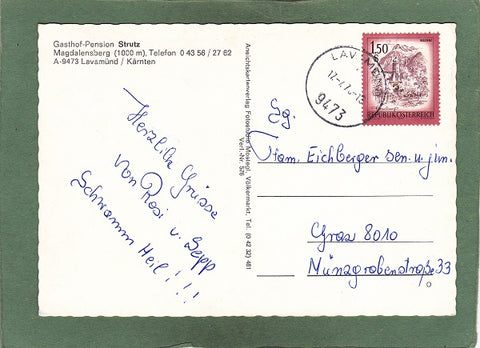 Gasthof-Pension Strutz
Magdalensberg (1000 m), Telefon 0 43 56 / 27 62
A-9473 Lavamünd / Kärnten
Herzliche Grüsse
von Rosi u. Sepp
Schwamm Heil!!!
Ansichtskartenverlag Fotostudio Mossegl, Völkermarkt, Tel. (0 42 32) 481
Verl.-Nr. 526
1.50
REPUBLIK ÖSTERREICH
9473
Sg.
Fam. Eichberger sen. u. jun.
Graz 8010
Münzgrabenstraße 33